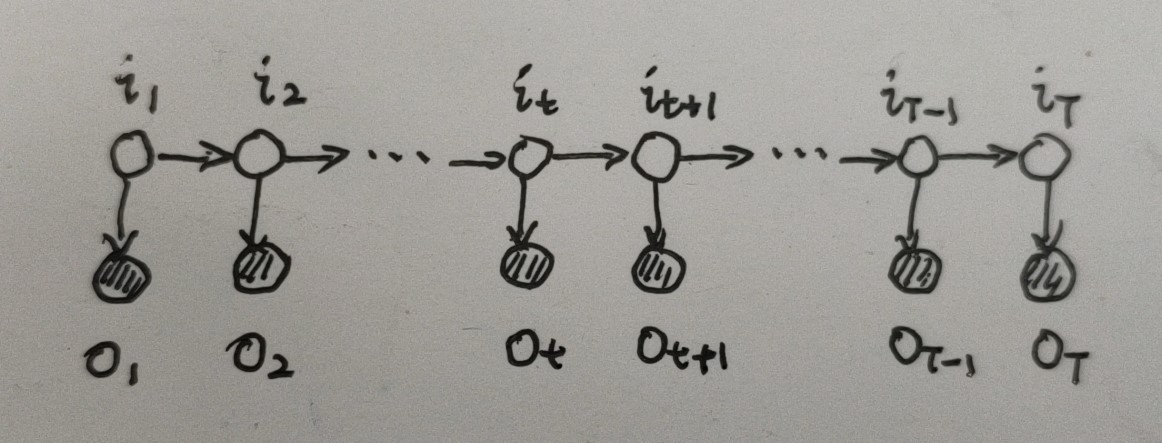 i₁ i₂ iₜ iₜ₊₁ i_T-1 i_T
... ...
o₁ o₂ oₜ oₜ₊₁ o_T-1 o_T